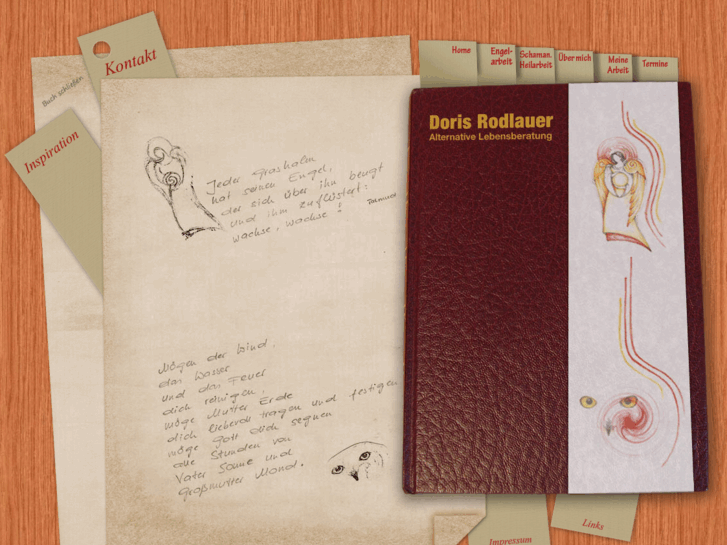 Home
Engel-
arbeit
Schaman.
Heilarbeit
Über mich
Meine
Arbeit
Termine
Kontakt
Buch schließen
Inspiration
Doris Rodlauer
Alternative Lebensberatung
Jeder Grashalm
hat seinen Engel,
der sich über ihn beugt
und ihm zuflüstert:
wachse, wachse!
Talmud
Mögen der Wind,
das Wasser
und das Feuer
dich reinigen,
möge Mutter Erde
dich liebend tragen und festigen
möge Gott dich segnen
alle Stunden von
Vater Sonne und
Großmutter Mond.
Impressum
Links